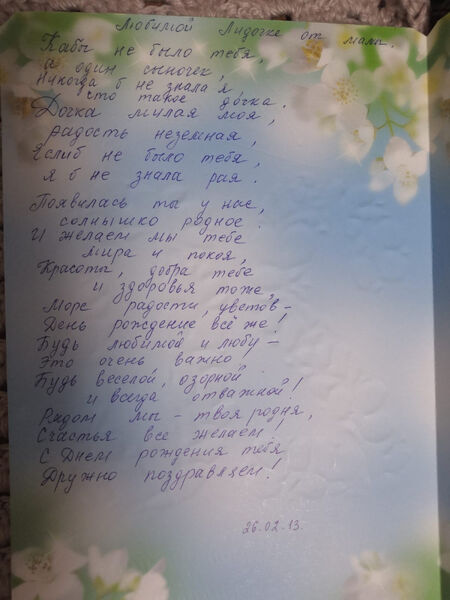 Любимой Лидочке от мамы.
Кабы не было тебя,
а один сыночек,
Никогда б не знала я
что такое дочка.
Дочка милая моя,
радость неземная,
Еслиб не было тебя,
я б не знала рая.
Появилась ты у нас,
солнышко родное.
И желаем мы тебе
мира и покоя,
Красоты, добра тебе
и здоровья тоже,
Море радости, цветов –
День рождение всё же!
Будь любимой и любу –
Это очень важно,
Будь веселой, озорной
и всегда отважной!
Рядом мы – твоя родня,
Счастья все желаем,
С Днем рождения тебя,
Дружно поздравляем!
26.02.13.